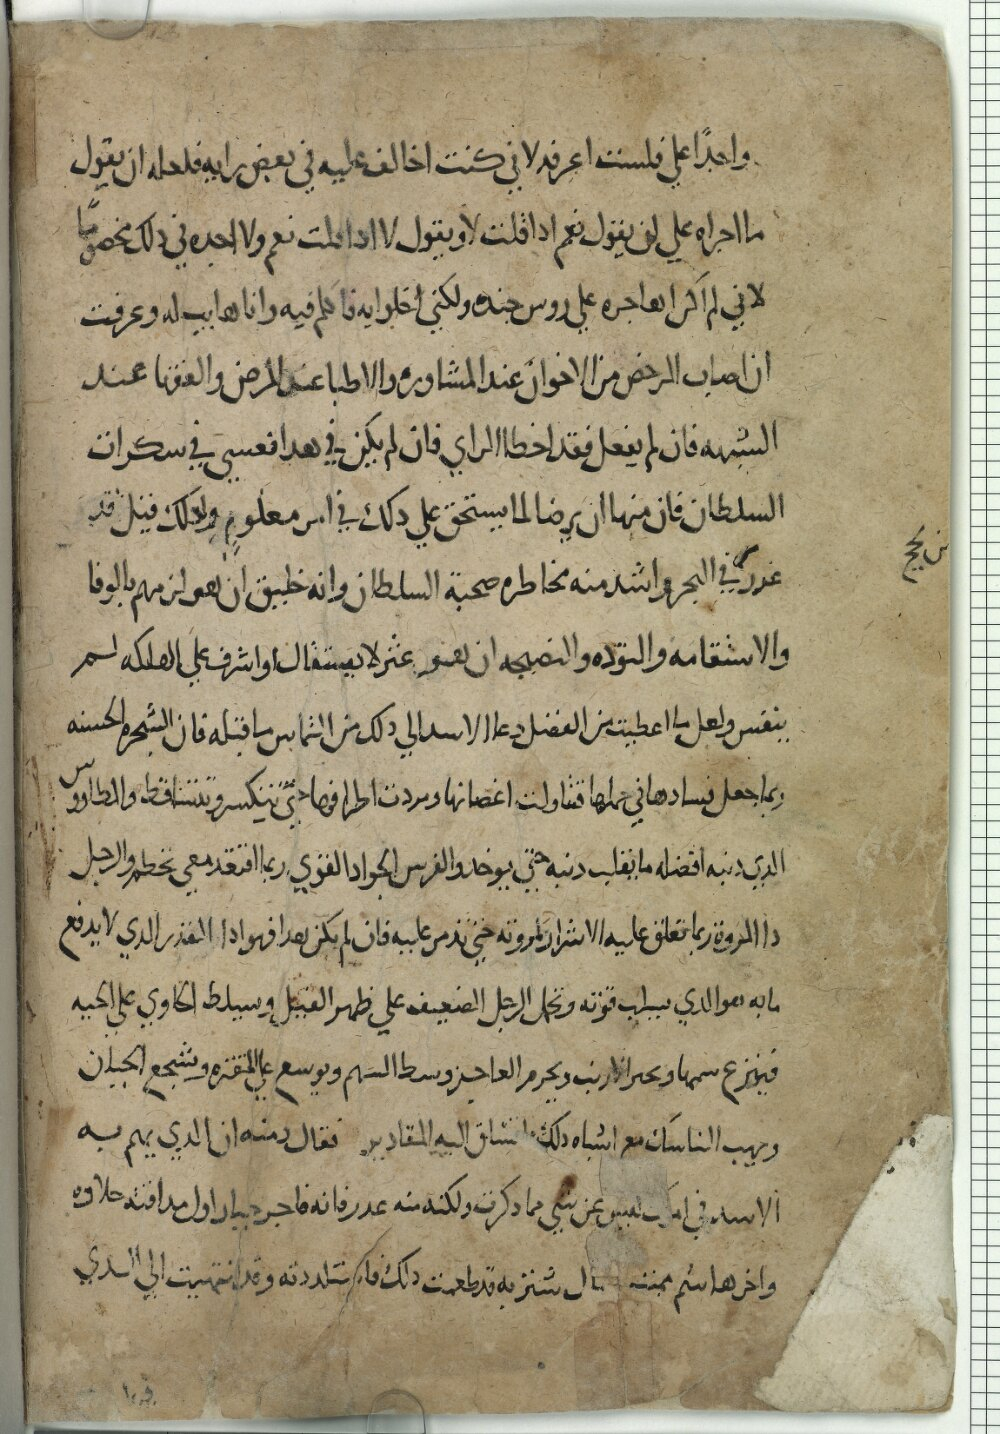 واحدًا علي فلست اعرفه لاني كنت اخالف عليه في بعض رايه فلعله ان يقول
ما اجراه علي لان يقول نعم اذا قلت لا ويقول لا اذا قلت نعم ولا اجده في ذلك مخصومًا
لاني لم اكن اهاجره علي روس جنده ولكني اخلوا به فاكلم فيه وانا هايب له وعرفت
ان اصاب الرخص من الاخوان عند المشاوره والاطبا عند المرض والفقها عند
الشبهه فان لم يفعل فقد اخطا الراي فان لم يكن في هذا فعسي في سكرات
السلطان فان منها ان يرضا لما يستحق علي ذلك في امر معلوم ولذلك قيل قد
غدر في البحر واشد منه مخاطره صحبة السلطان وانه خليق ان هو لزمهم بالوفا
والاستقامه والتوده والنصيحه ان يعثر لا يستقال او اشرف علي الهلكه لم
ينفس ولعل ما اعطيت من الفضل دعا الاسد الي ذلك من التماس ما قبله فان الشجره الحسنه
ربما جعل فسادها في حملها فتناولت اغصانها ومردت اطرافها حتي تنكسر وتتساقط والطاووس
الذي ذنبه افضله ما يقلب ذنبه حتي يوخذ والفرس الجواد القوي ربما اقتعد معي تخطم والرجل
ذا المروة ربما تعلق عليه الاشرار لمروته حتي تدمر عليه فان لم يكن هذا فهو اذا القدر الذي لا يدفع
ما به هو الذي يسلب قوته ويحمل الرجل الضعيف علي ظهر الفيل ويسلط الحاوي علي الحيه
فينزع سمها ويحير الاريب ويحرم العاجز وسط السهم ويوسع علي المقتره ويشجع الجبان
ويهيب الناسك مع اشباه ذلك تنساق اليه المقادير فقال دمنه ان الذي يهم به
الاسد في امرك ليس عن شي مما ذكرت ولكنه منه غدر فانه فاجر جبار اول مذاقته حلاوه
واخرها سم مميت قال شنزبه قد طعمت ذلك فاستلذذته وقد انتهيت الي الذي